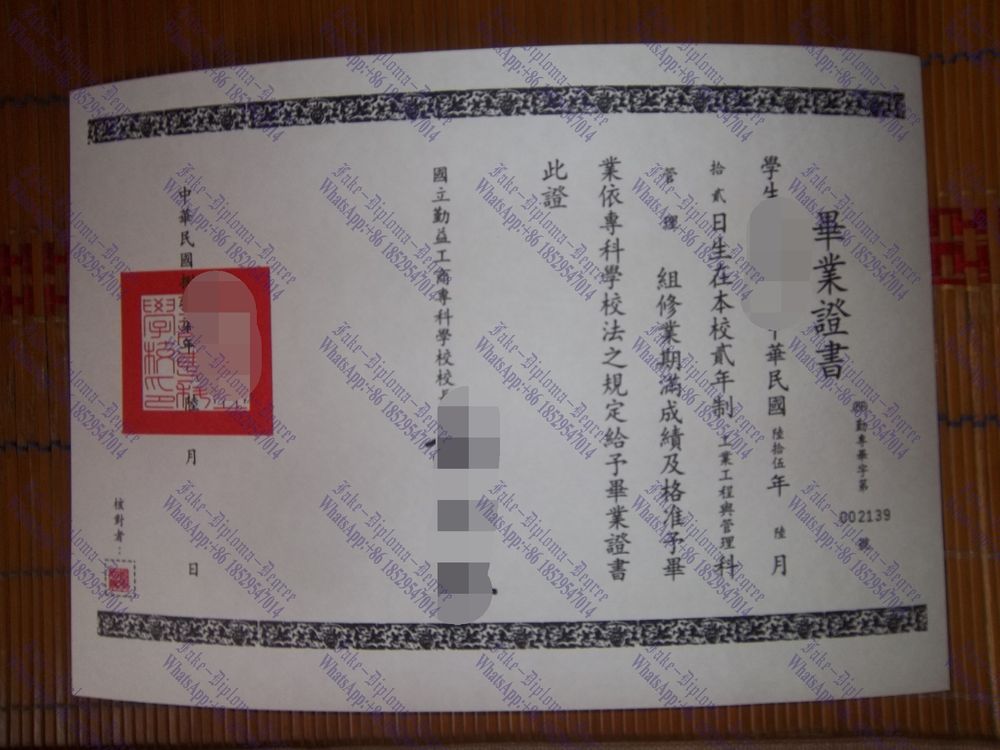 畢業證書
勤專畢字第
002139
號
學生 華民國陸拾伍年 陸 月
拾貳日生在本校貳年制工業工程與管理科
管理組修業期滿成績及格准予畢
業依專科學校法之規定給予畢業證書
此證
國立勤益工商專科學校校長
中華民國 年 陸 月 日
核對者：
Fake-Diploma-Degree
WhatsApp:+86 18529547014